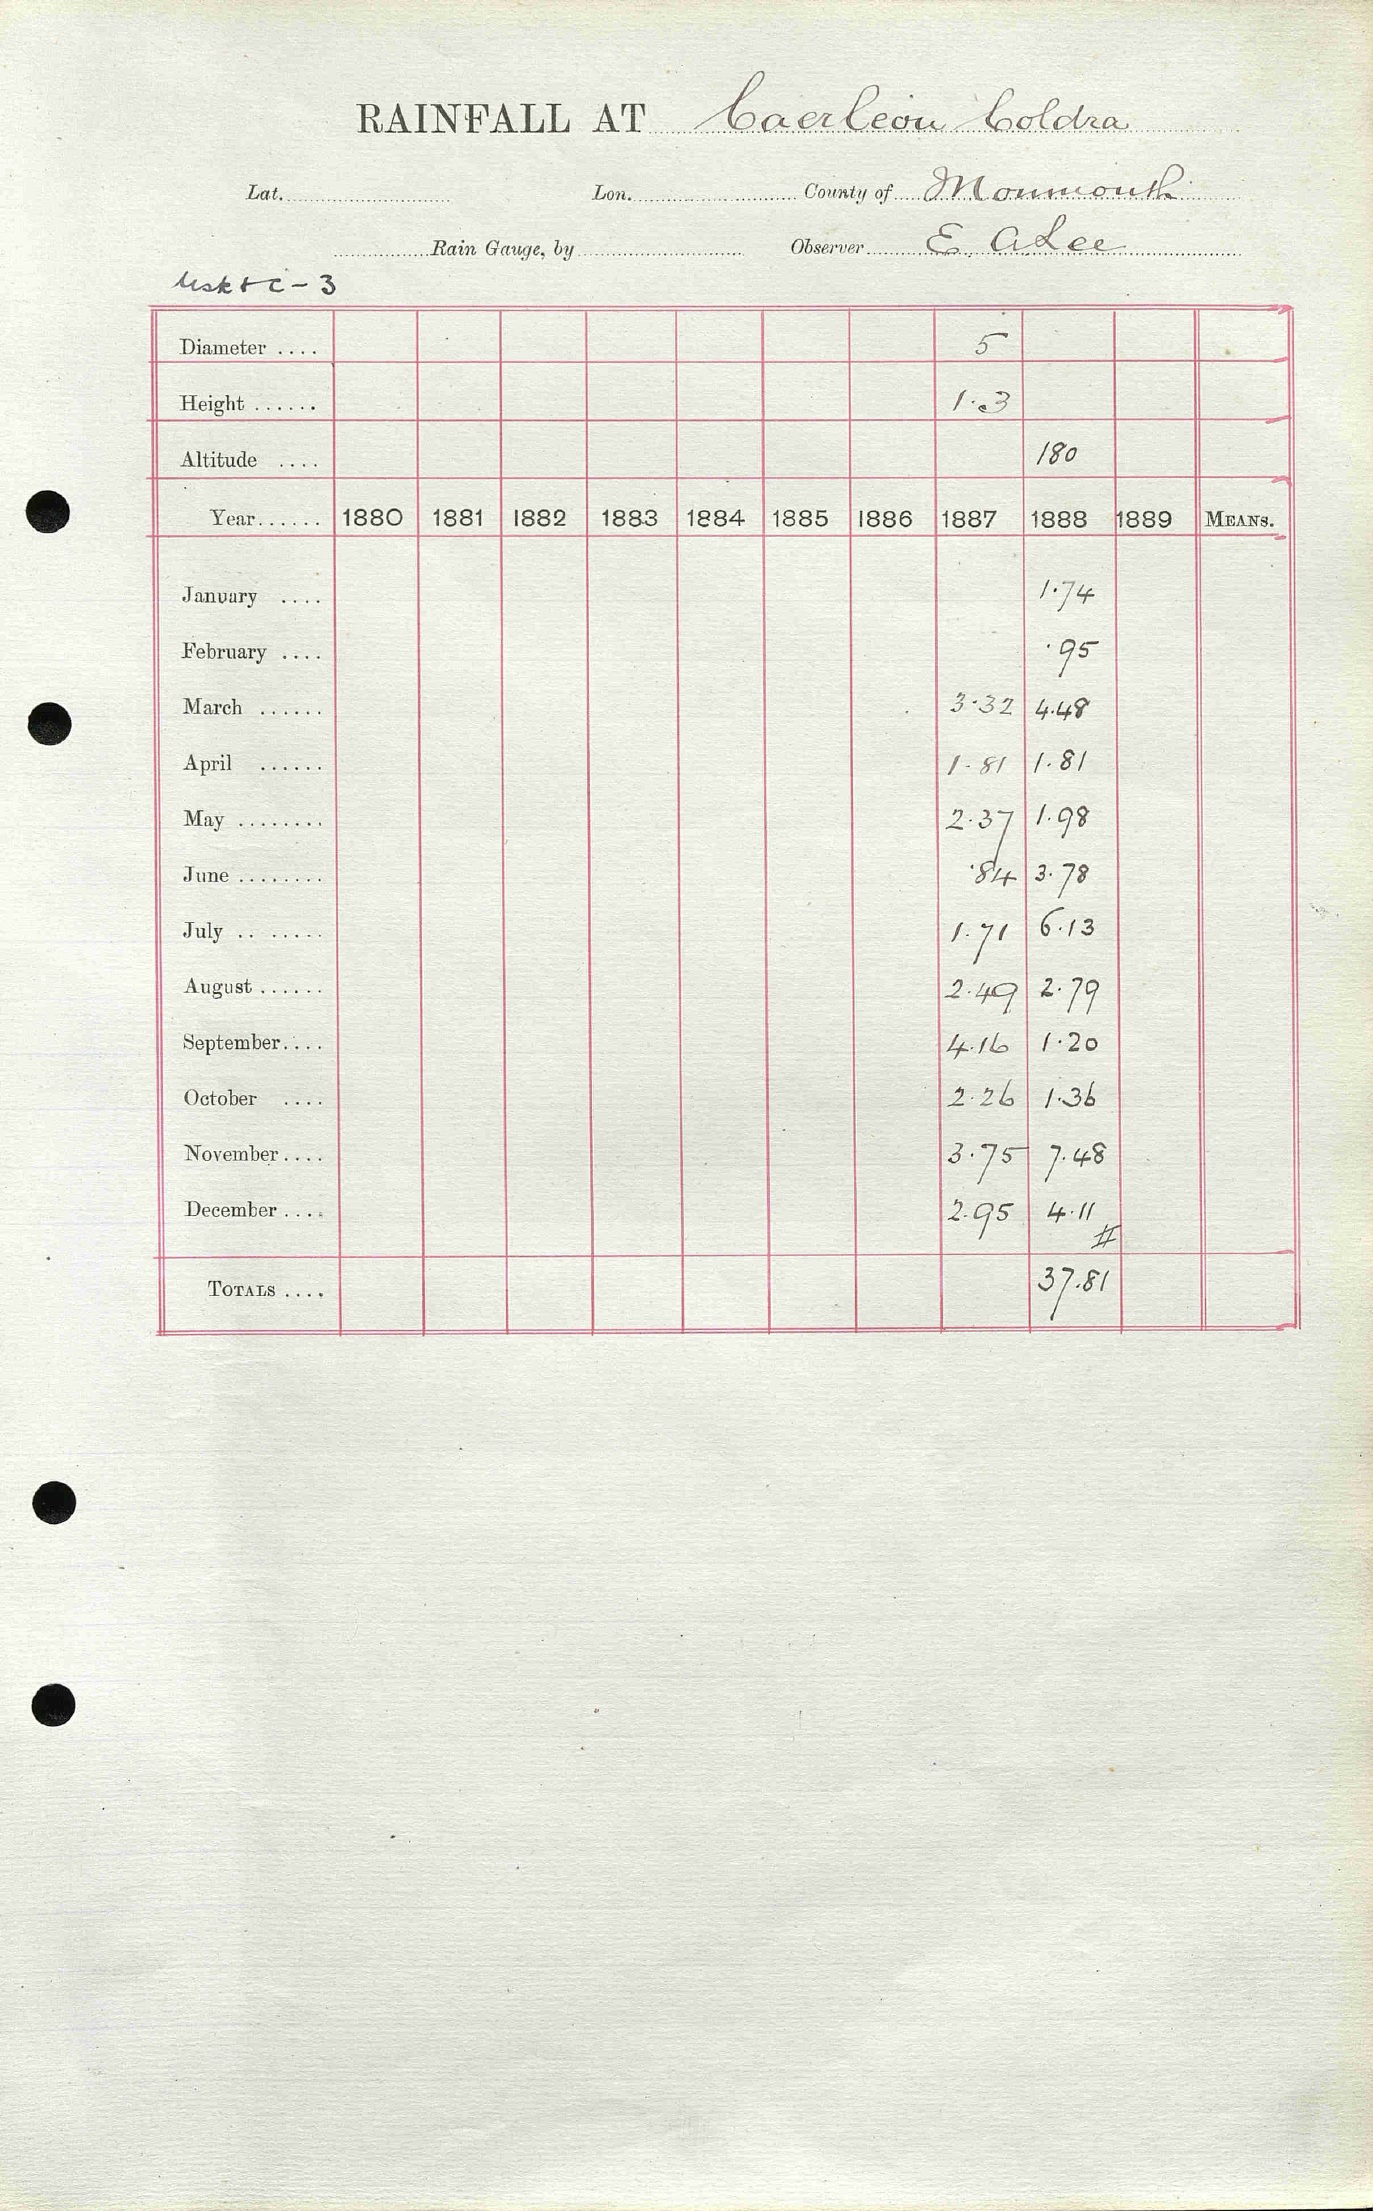 RAINFALL AT Caerleon Coldra
Lat. Lon. County of Monmouth
Rain Gauge, by Observer E. A. Lee
Usk & C - 3
Diameter .... 5
Height ...... 1.3
Altitude .... 180
Year ...... 1880 1881 1882 1883 1884 1885 1886 1887 1888 1889 MEANS.
January .... 1.74
February .... .95
March ...... 3.32 4.48
April ...... 1.81 1.81
May ........ 2.37 1.98
June ........ .84 3.78
July .. ...... 1.71 6.13
August ...... 2.49 2.79
September.... 4.16 1.20
October .... 2.26 1.36
November.... 3.75 7.48
December .... 2.95 4.11
#
TOTALS .... 37.81